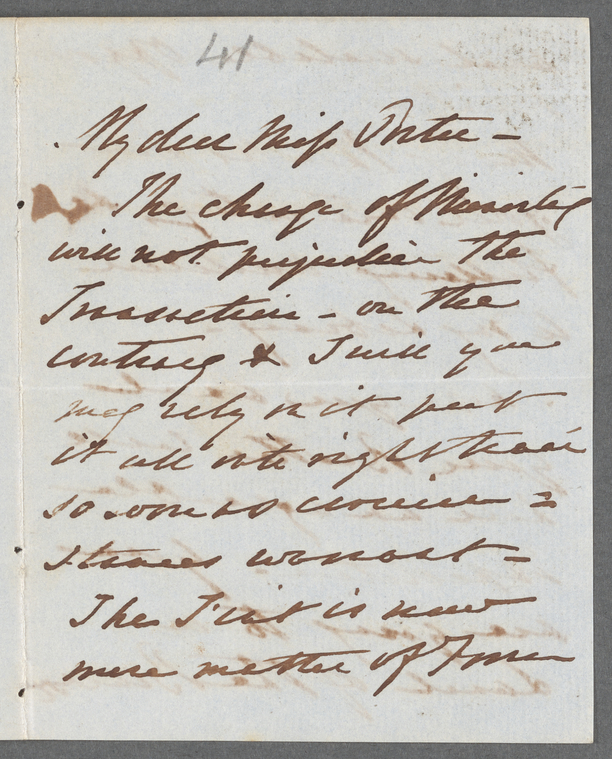 41
My dear Miss Porter -
The change of Ministry
will not prejudice the
Transaction - on the
contrary & I will you
may rely on it put
it all into right train
so soon as circum =
stances warrant -
The Visit is now
mere matter of Form